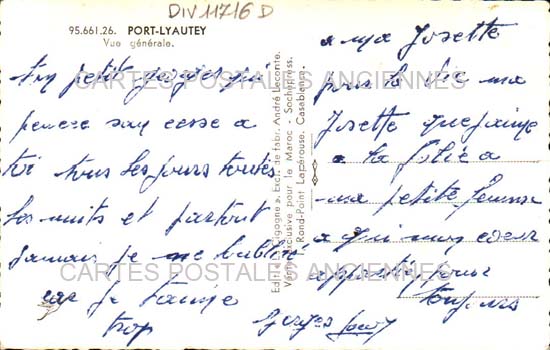 DIV 11716 D
95.661.26. PORT-LYAUTEY
Vue générale.
ton petit georges qui
pense sans cesse a
toi tous les jours toutes
les nuits et partout
jamais je ne
car je t'aime
trop
a ma Josette
pour la vie ma
Josette que j'aime
a la folie a
ma petite femme
a qui mon coeur
appartient pour
toujours
Georges
Edit. "La Cigogne", Exclu. de fabr. André Leconte.
Vente exclusive pour le Maroc - Sochepress.
Rond-Point Lapérouse. Casablanca.
CARTES POSTALES ANCIENNES
CARTES POSTALES ANCIENNES